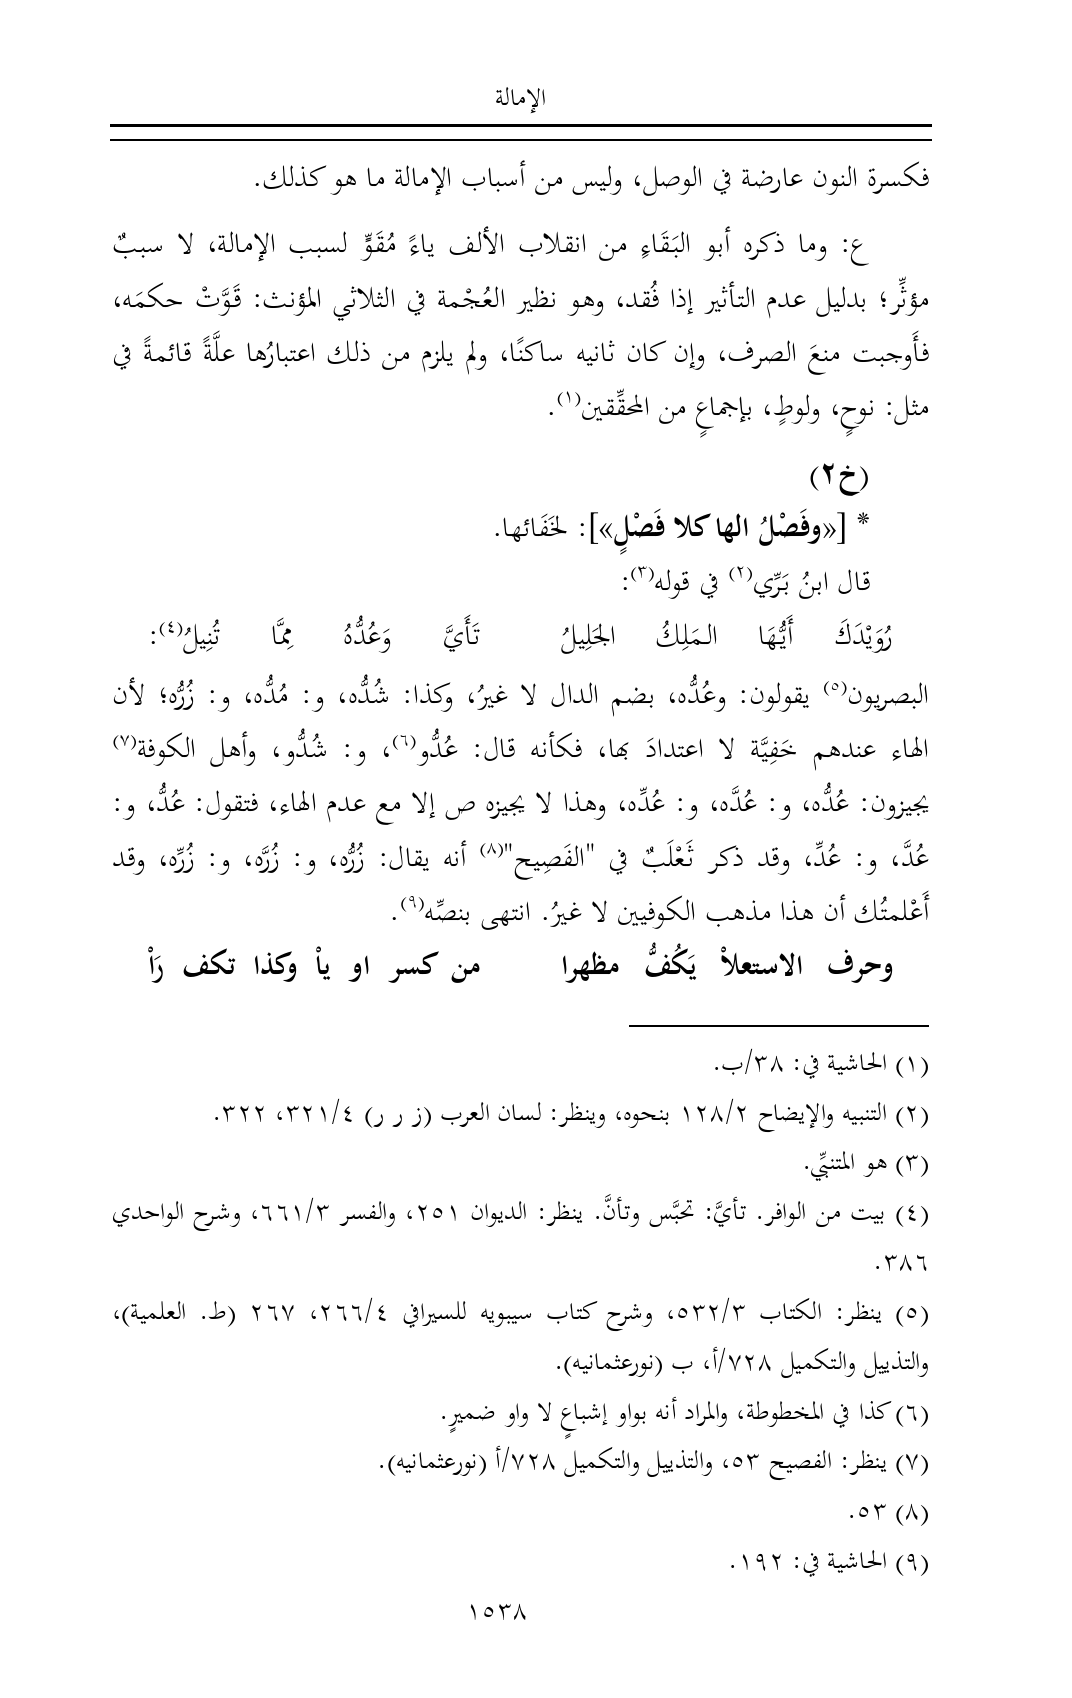 الإمالة
فكسرة النون عارضة في الوصل، وليس من أسباب الإمالة ما هو كذلك.
ع: وما ذكره أبو البَقَاءِ من انقلاب الألف ياءً مُقَوٍّ لسبب الإمالة، لا سببٌ
مؤثِّر؛ بدليل عدم التأثير إذا فُقد، وهو نظير العُجْمة في الثلاثي المؤنث: قَوَّتْ حكمَه،
فأَوجبت منعَ الصرف، وإن كان ثانيه ساكنًا، ولم يلزم من ذلك اعتبارُها علَّةً قائمةً في
مثل: نوحٍ، ولوطٍ، بإجماعٍ من المحقِّقين(١).
(خ٢)
* [«وفَصْلُ الها كلا فَصْلٍ»]: لخَفَائها.
قال ابنُ بَرِّي(٢) في قوله(٣):
رُوَيْدَكَ أَيُّهَا المَلِكُ الجَلِيلُ تَأَيَّ وَعُدُّهُ مِمَّا تُنِيلُ(٤):
البصريون(٥) يقولون: وعُدُّه، بضم الدال لا غيرُ، وكذا: شُدُّه، و: مُدُّه، و: زُرُّه؛ لأن
الهاء عندهم خَفِيَّة لا اعتدادَ بها، فكأنه قال: عُدُّو(٦)، و: شُدُّو، وأهل الكوفة(٧)
يجيزون: عُدُّه، و: عُدَّه، و: عُدِّه، وهذا لا يجيزه ص إلا مع عدم الهاء، فتقول: عُدُّ، و:
عُدَّ، و: عُدِّ، وقد ذكر ثَعْلَبٌ في "الفَصِيح"(٨) أنه يقال: زُرُّه، و: زُرَّه، و: زُرِّه، وقد
أَعْلمتُك أن هذا مذهب الكوفيين لا غيرُ. انتهى بنصِّه(٩).
وحرف الاستعلاْ يَكُفُّ مظهرا من كسر او ياْ وكذا تكف رَاْ
(١) الحاشية في: ٣٨/ب.
(٢) التنبيه والإيضاح ١٢٨/٢ بنحوه، وينظر: لسان العرب (ز ر ر) ٣٢١/٤، ٣٢٢.
(٣) هو المتنبِّي.
(٤) بيت من الوافر. تأيَّ: تحبَّس وتأنَّ. ينظر: الديوان ٢٥١، والفسر ٦٦١/٣، وشرح الواحدي
٣٨٦.
(٥) ينظر: الكتاب ٥٣٢/٣، وشرح كتاب سيبويه للسيرافي ٢٦٦/٤، ٢٦٧ (ط. العلمية)،
والتذييل والتكميل ٧٢٨/أ، ب (نورعثمانيه).
(٦) كذا في المخطوطة، والمراد أنه بواو إشباعٍ لا واو ضميرٍ.
(٧) ينظر: الفصيح ٥٣، والتذييل والتكميل ٧٢٨/أ (نورعثمانيه).
(٨) ٥٣.
(٩) الحاشية في: ١٩٢.
١٥٣٨